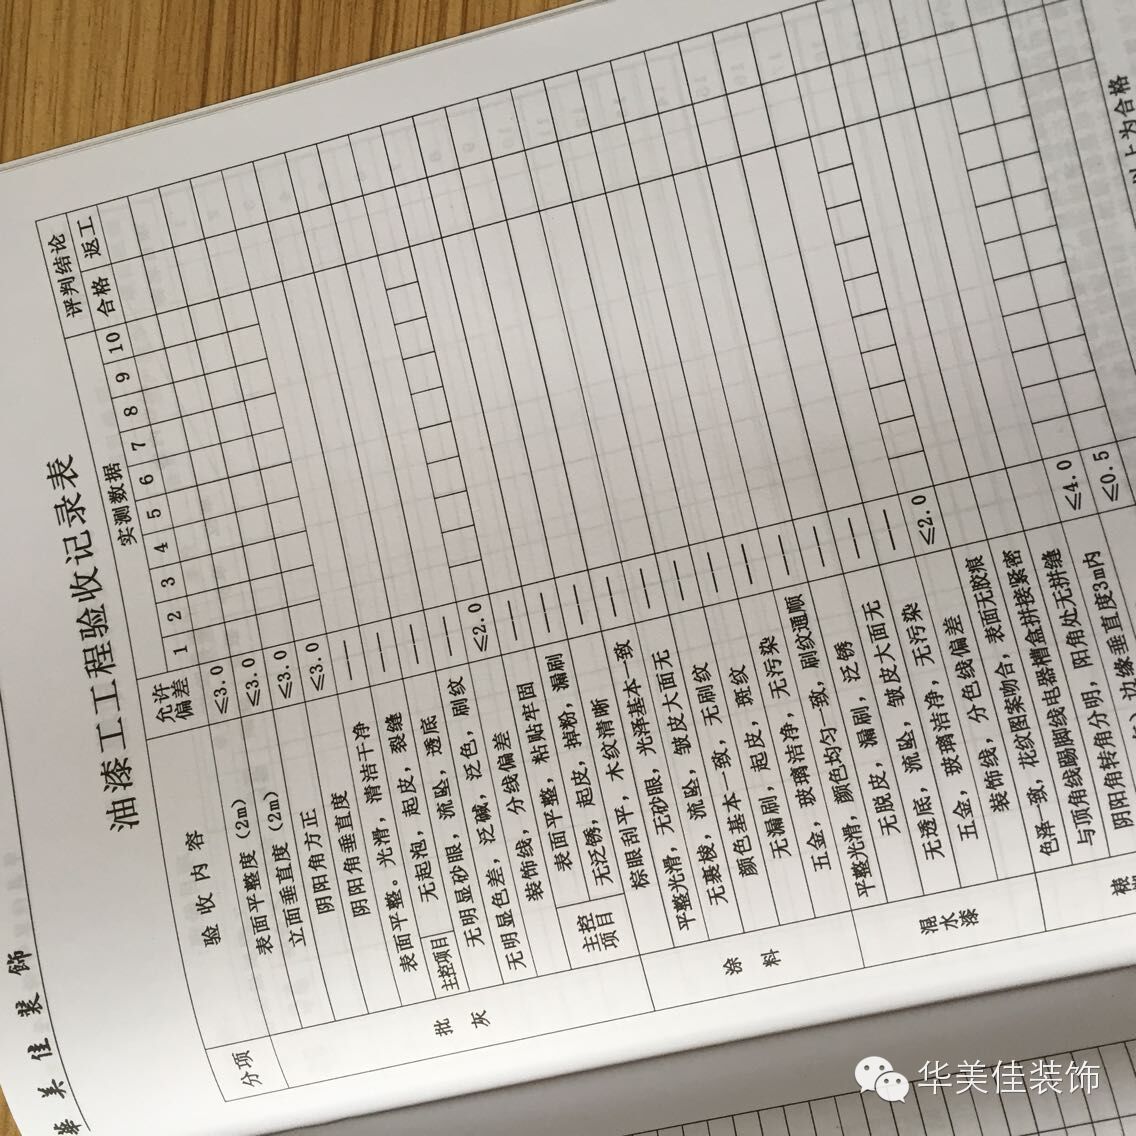 华美佳装饰
油漆工工程验收记录表
分项 验收内容 允许偏差 实测数据 评判结论
1 2 3 4 5 6 7 8 9 10 合格 返工
批灰
表面平整度(2m) ≤3.0
立面垂直度(2m) ≤3.0
阴阳角方正 ≤3.0
阴阳角垂直度 ≤3.0
表面平整。光滑,清洁干净 —
主控项目 无起泡,起皮,裂缝 —
无明显砂眼,流坠,透底 —
无明显色差,泛碱,泛色,刷纹 —
装饰线,分线偏差 ≤2.0
主控项目
表面平整,粘贴牢固 —
无泛锈,起皮,掉粉,漏刷 —
涂料
棕眼刮平,木纹清晰 —
平整光滑,无砂眼,光泽基本一致 —
无裹棱,流坠,皱皮大面无 —
颜色基本一致,无刷纹 —
无漏刷,起皮,斑纹 —
五金,玻璃洁净,无污染 —
混水漆
平整光滑,颜色均匀一致,刷纹通顺 —
无脱皮,漏刷,泛锈 —
无透底,流坠,皱皮大面无 —
五金,玻璃洁净,无污染 —
装饰线,分色线偏差 ≤2.0
裱
色泽一致,花纹图案吻合,表面无胶痕
与顶角线踢脚线电器槽盒拼接紧密
阴阳角转角分明,阳角处无拼缝
边缘垂直度3m内 ≤4.0
≤0.5
上为合格
华美佳装饰